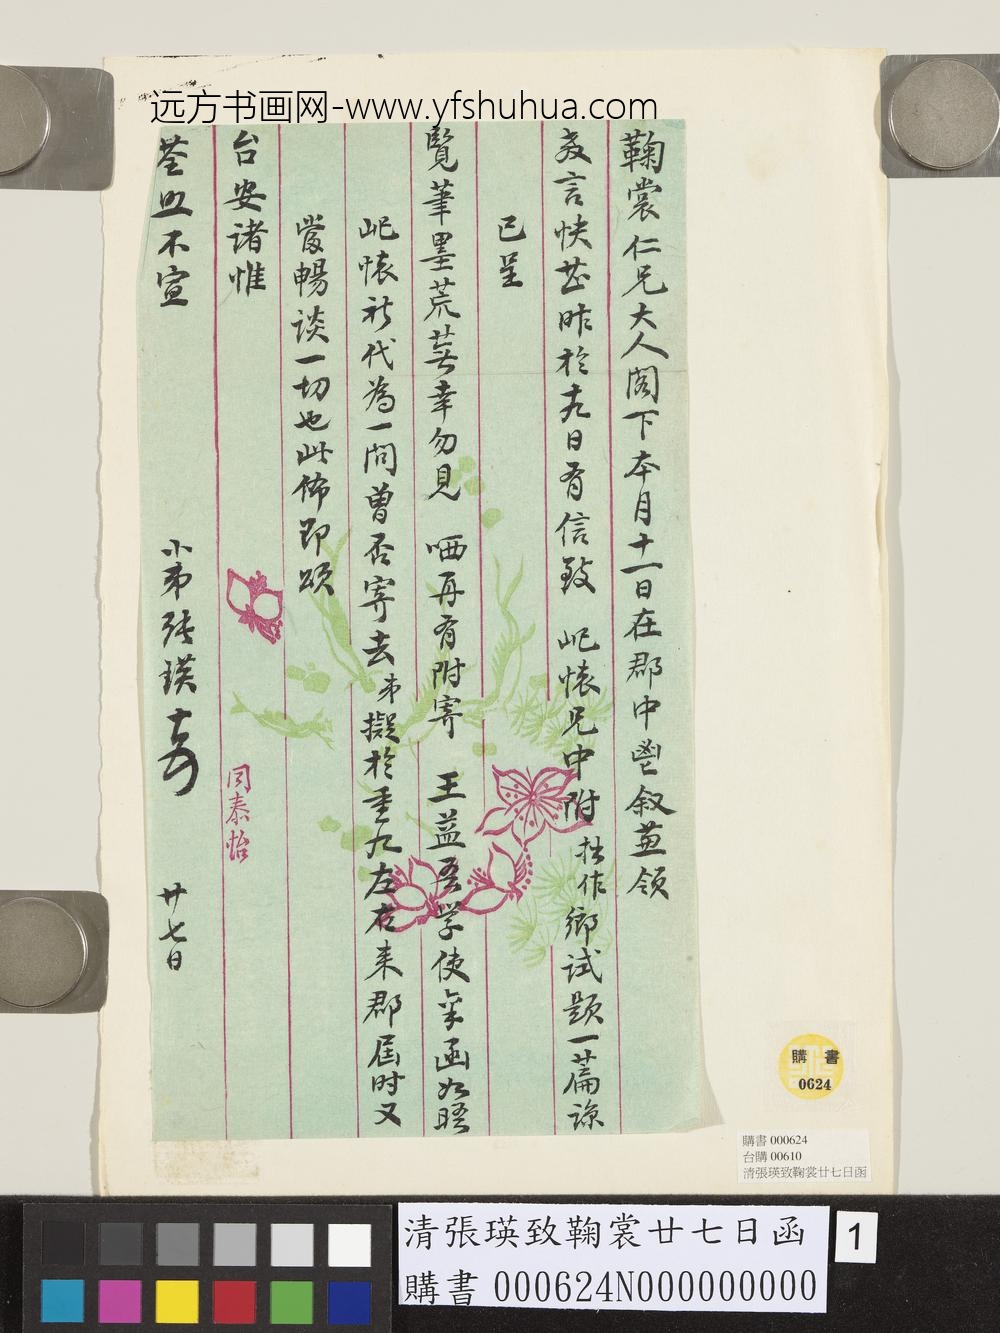 远方书画网-www.yfshuhua.com
鞠裳仁兄大人阁下本月十一日在郡中鬯叙兼领
教言快甚昨于十九日有信致 屺怀兄中附拙作乡试题一篇谅
已呈
覽筆墨荒蕪幸勿見 哂再有附寄 王益吾學使 函如晤
屺懷祈代為一問曾否寄去弟擬於重九左右来郡屆时又
當暢談一切也此佈即頌
台安諸惟
荃照不宣
小弟張瑛
同泰怡
廿七日
購書
0624
購書 000624
台購 00610
清張瑛致鞠裳廿七日函
清張瑛致鞠裳廿七日函
購書 000624N000000000
1